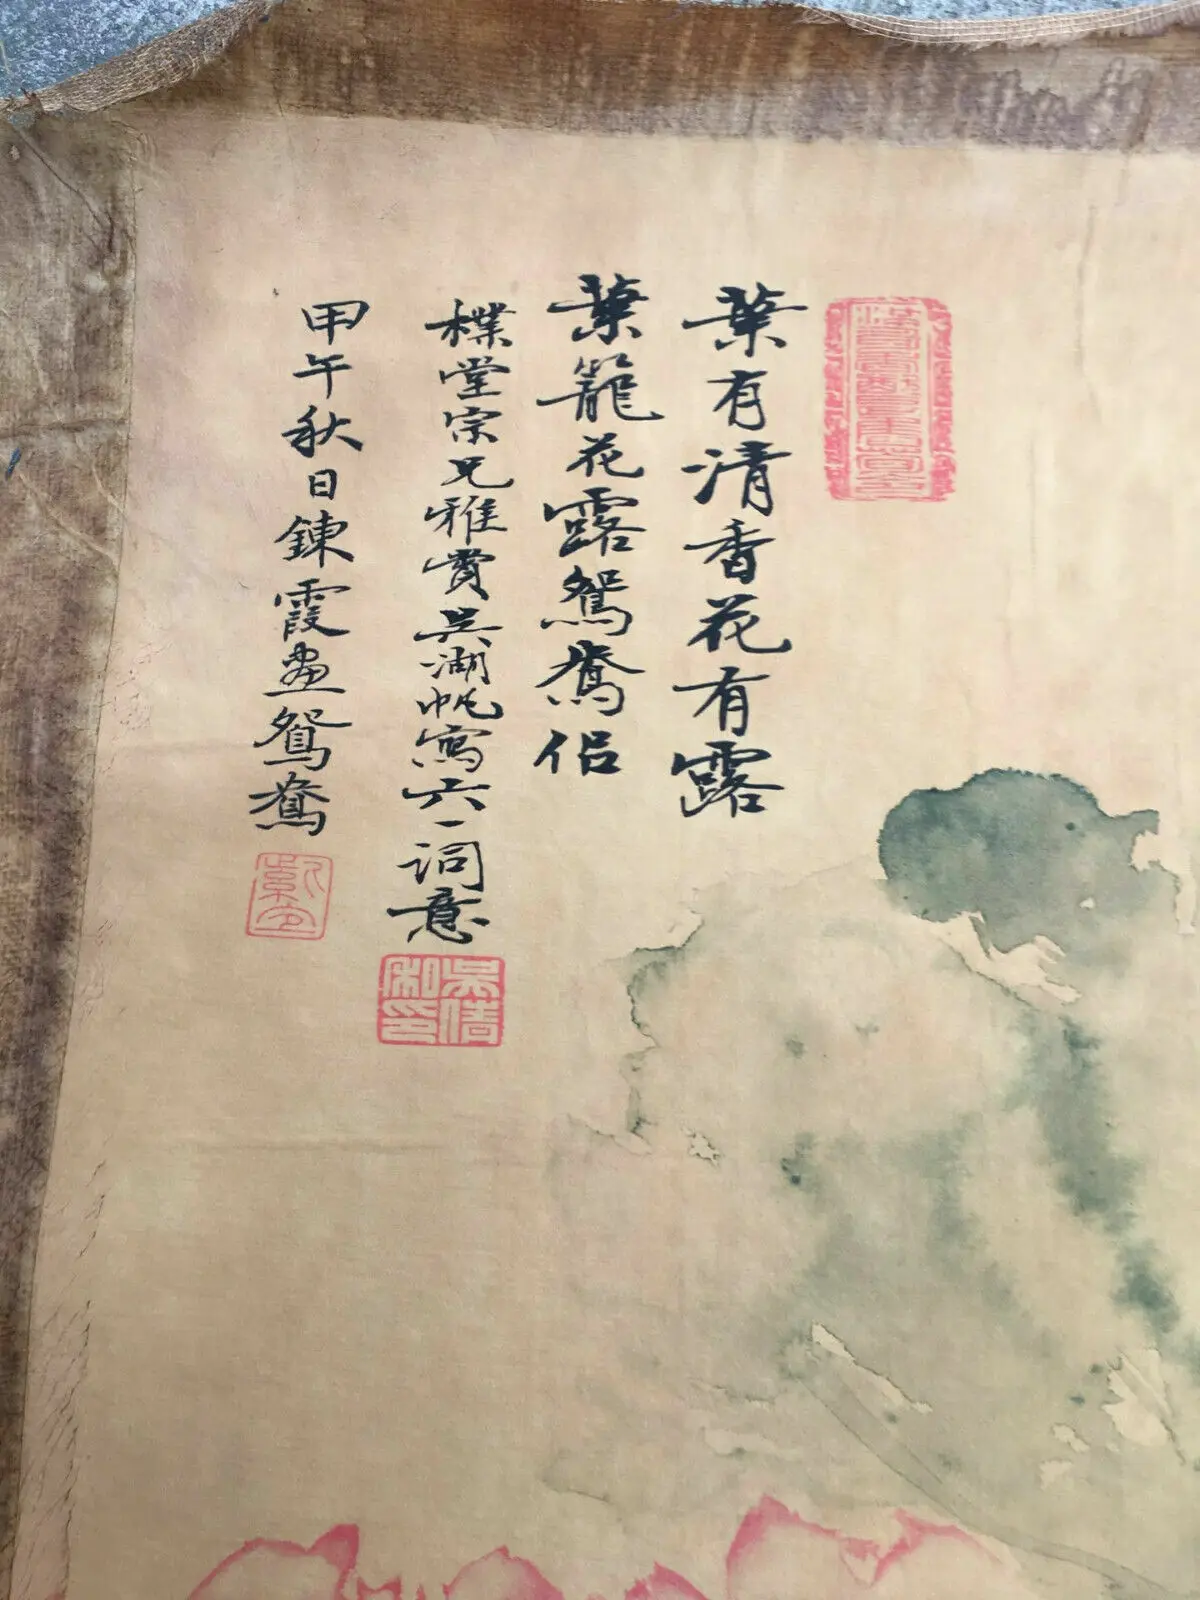 葉有清香花有露
葉籠花露鴛鴦侶
樸堂宗兄雅賞吳湖帆寫六一詞意
甲午秋日鍊霞畫鴛鴦
吳倩私印